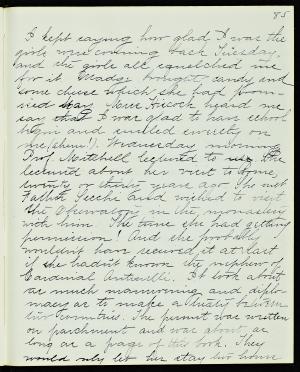 85
I kept saying how glad I was the
girls were coming back Tuesday,
and the girls all squelched me
for it. Madge brought candy and
some cheese which she had prom-
ised Mary. Miss Hiscock heard me
say that I was glad to have school
begin and smiled sweetly on
me (ahem!). Wednesday morning
Prof. Mitchell lectured to us. She
lectured about her visit to Rome,
twenty or thirty years ago. She met
Father Secchi and wished to visit
the Observatory in the monastery
with him. The time she had getting
permission! And she probably
wouldn't have received it at last
if she hadn't known the nephew of
Cardinal Antonelli. It took about
as much manouvering and diplo-
macy as to make a treaty between
two countries. The permit was written
on parchment and was about as
long as a page of this book. They
would only let her stay two hours